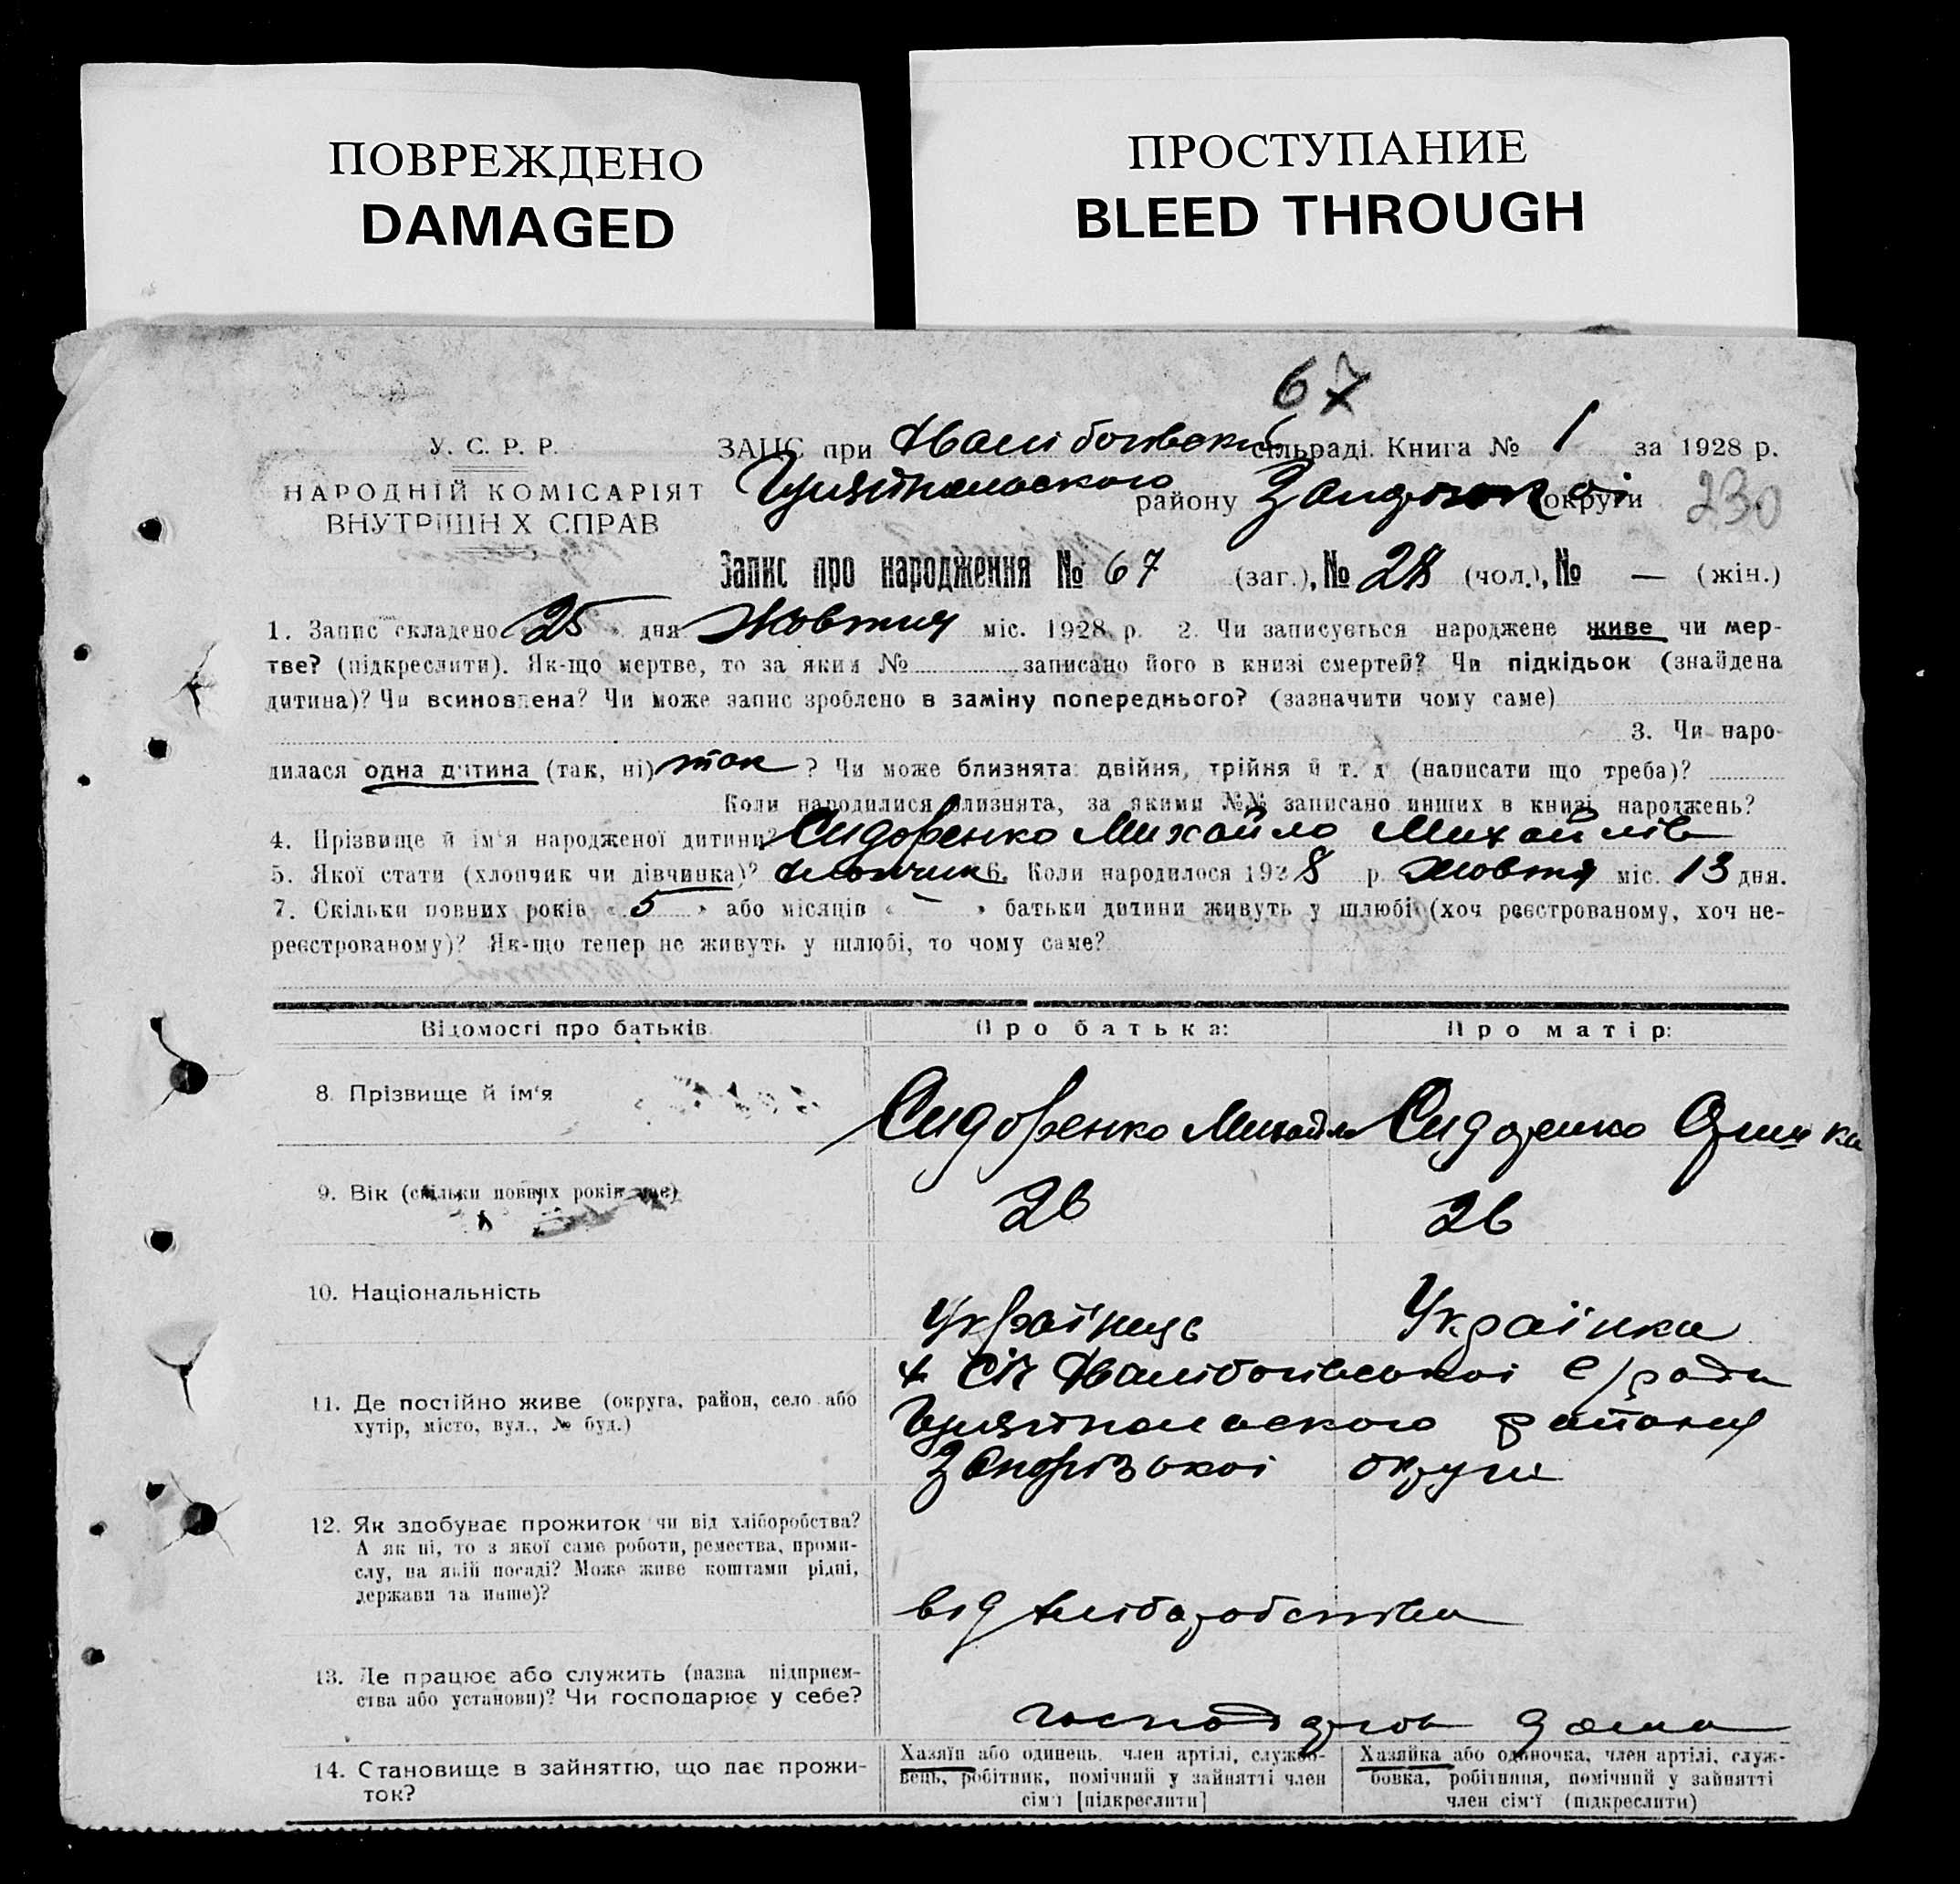 ПОВРЕЖДЕНО
DAMAGED
ПРОСТУПАНИЕ
BLEED THROUGH
67
У. С. Р. Р.
НАРОДНІЙ КОМІСАРІЯТ
ВНУТРІШН Х СПРАВ
ЗАЦС при сільраді. Книга № 1 за 1928 р.
району округи 230
Запис про народження № 67 (заг.), № 28 (чол.), № — (жін.)
1. Запис складено 25 дня Жовтня міс. 1928 р. 2. Чи записується народжене живе чи мер-
тве? (підкреслити). Як-що мертве, то за яким № записано його в книзі смертей? Чи підкідьок (знайдена
дитина)? Чи всиновлена? Чи може запис зроблено в заміну попереднього? (зазначити чому саме)
3. Чи наро-
дилася одна дитина (так, ні) так ? Чи може близнята: двійня, трійня й т. д (написати що треба)?
Коли народилися близнята, за якими №№ записано инших в книзі народжень?
4. Прізвище й ім'я народженої дитини? Сидоренко Михайло Михайлів
5. Якої стати (хлопчик чи дівчинка)? хлопчик 6. Коли народилося 1928 р. жовтня міс. 13 дня.
7. Скільки повних років « 5 » або місяців « – » батьки дитини живуть у шлюбі (хоч реєстрованому, хоч не-
реєстрованому)? Як-що тепер не живуть у шлюбі, то чому саме?
Відомості про батьків
Про батька:
Про матір:
8. Прізвище й ім'я
Сидоренко Михайло
Сидоренко
9. Вік (скільки повних років має)
26
26
10. Національність
Українець
Українка
11. Де постійно живе (округа, район, село або
хутір, місто, вул., № буд.)
с/ради
району
Запорізької округи
12. Як здобуває прожиток чи від хліборобства?
А як ні, то з якої саме роботи, ремества, проми-
слу, на якій посаді? Може живе коштами рідні,
держави та инше)?
від хліборобства
13. Де працює або служить (назва підприєм-
ства або установи)? Чи господарює у себе?
дома
14. Становище в зайняттю, що дає прожи-
ток?
Хазяїн або одинець, член артілі, службо-
вець, робітник, помічний у зайнятті член
сім'ї [підкреслити]
Хазяйка або одиночка, член артілі, служ-
бовка, робітниця, помічний у зайнятті
член сім'ї (підкреслити)